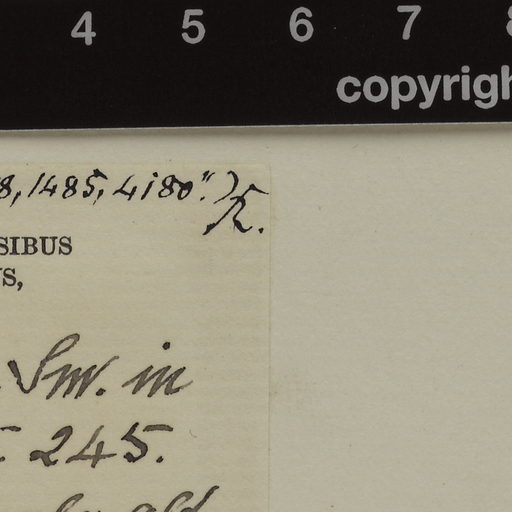 4 5 6 7 8
copyrigh
8, 1485, 4180".)
K.
SIBUS
S,
Sm. in
245.